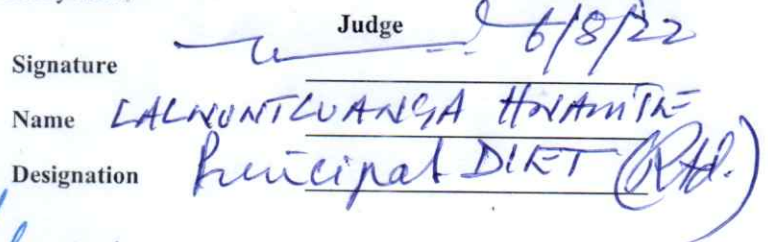 Judge
Signature 6/8/22
Name LALNUNTLUANGA HNAMTE
Designation Principal DIET (Rtd.)